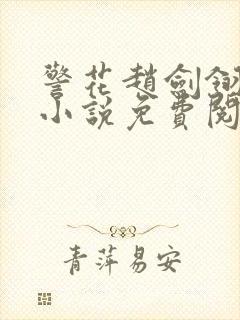 警花趙劍銀
小說免費閱
青萍易安